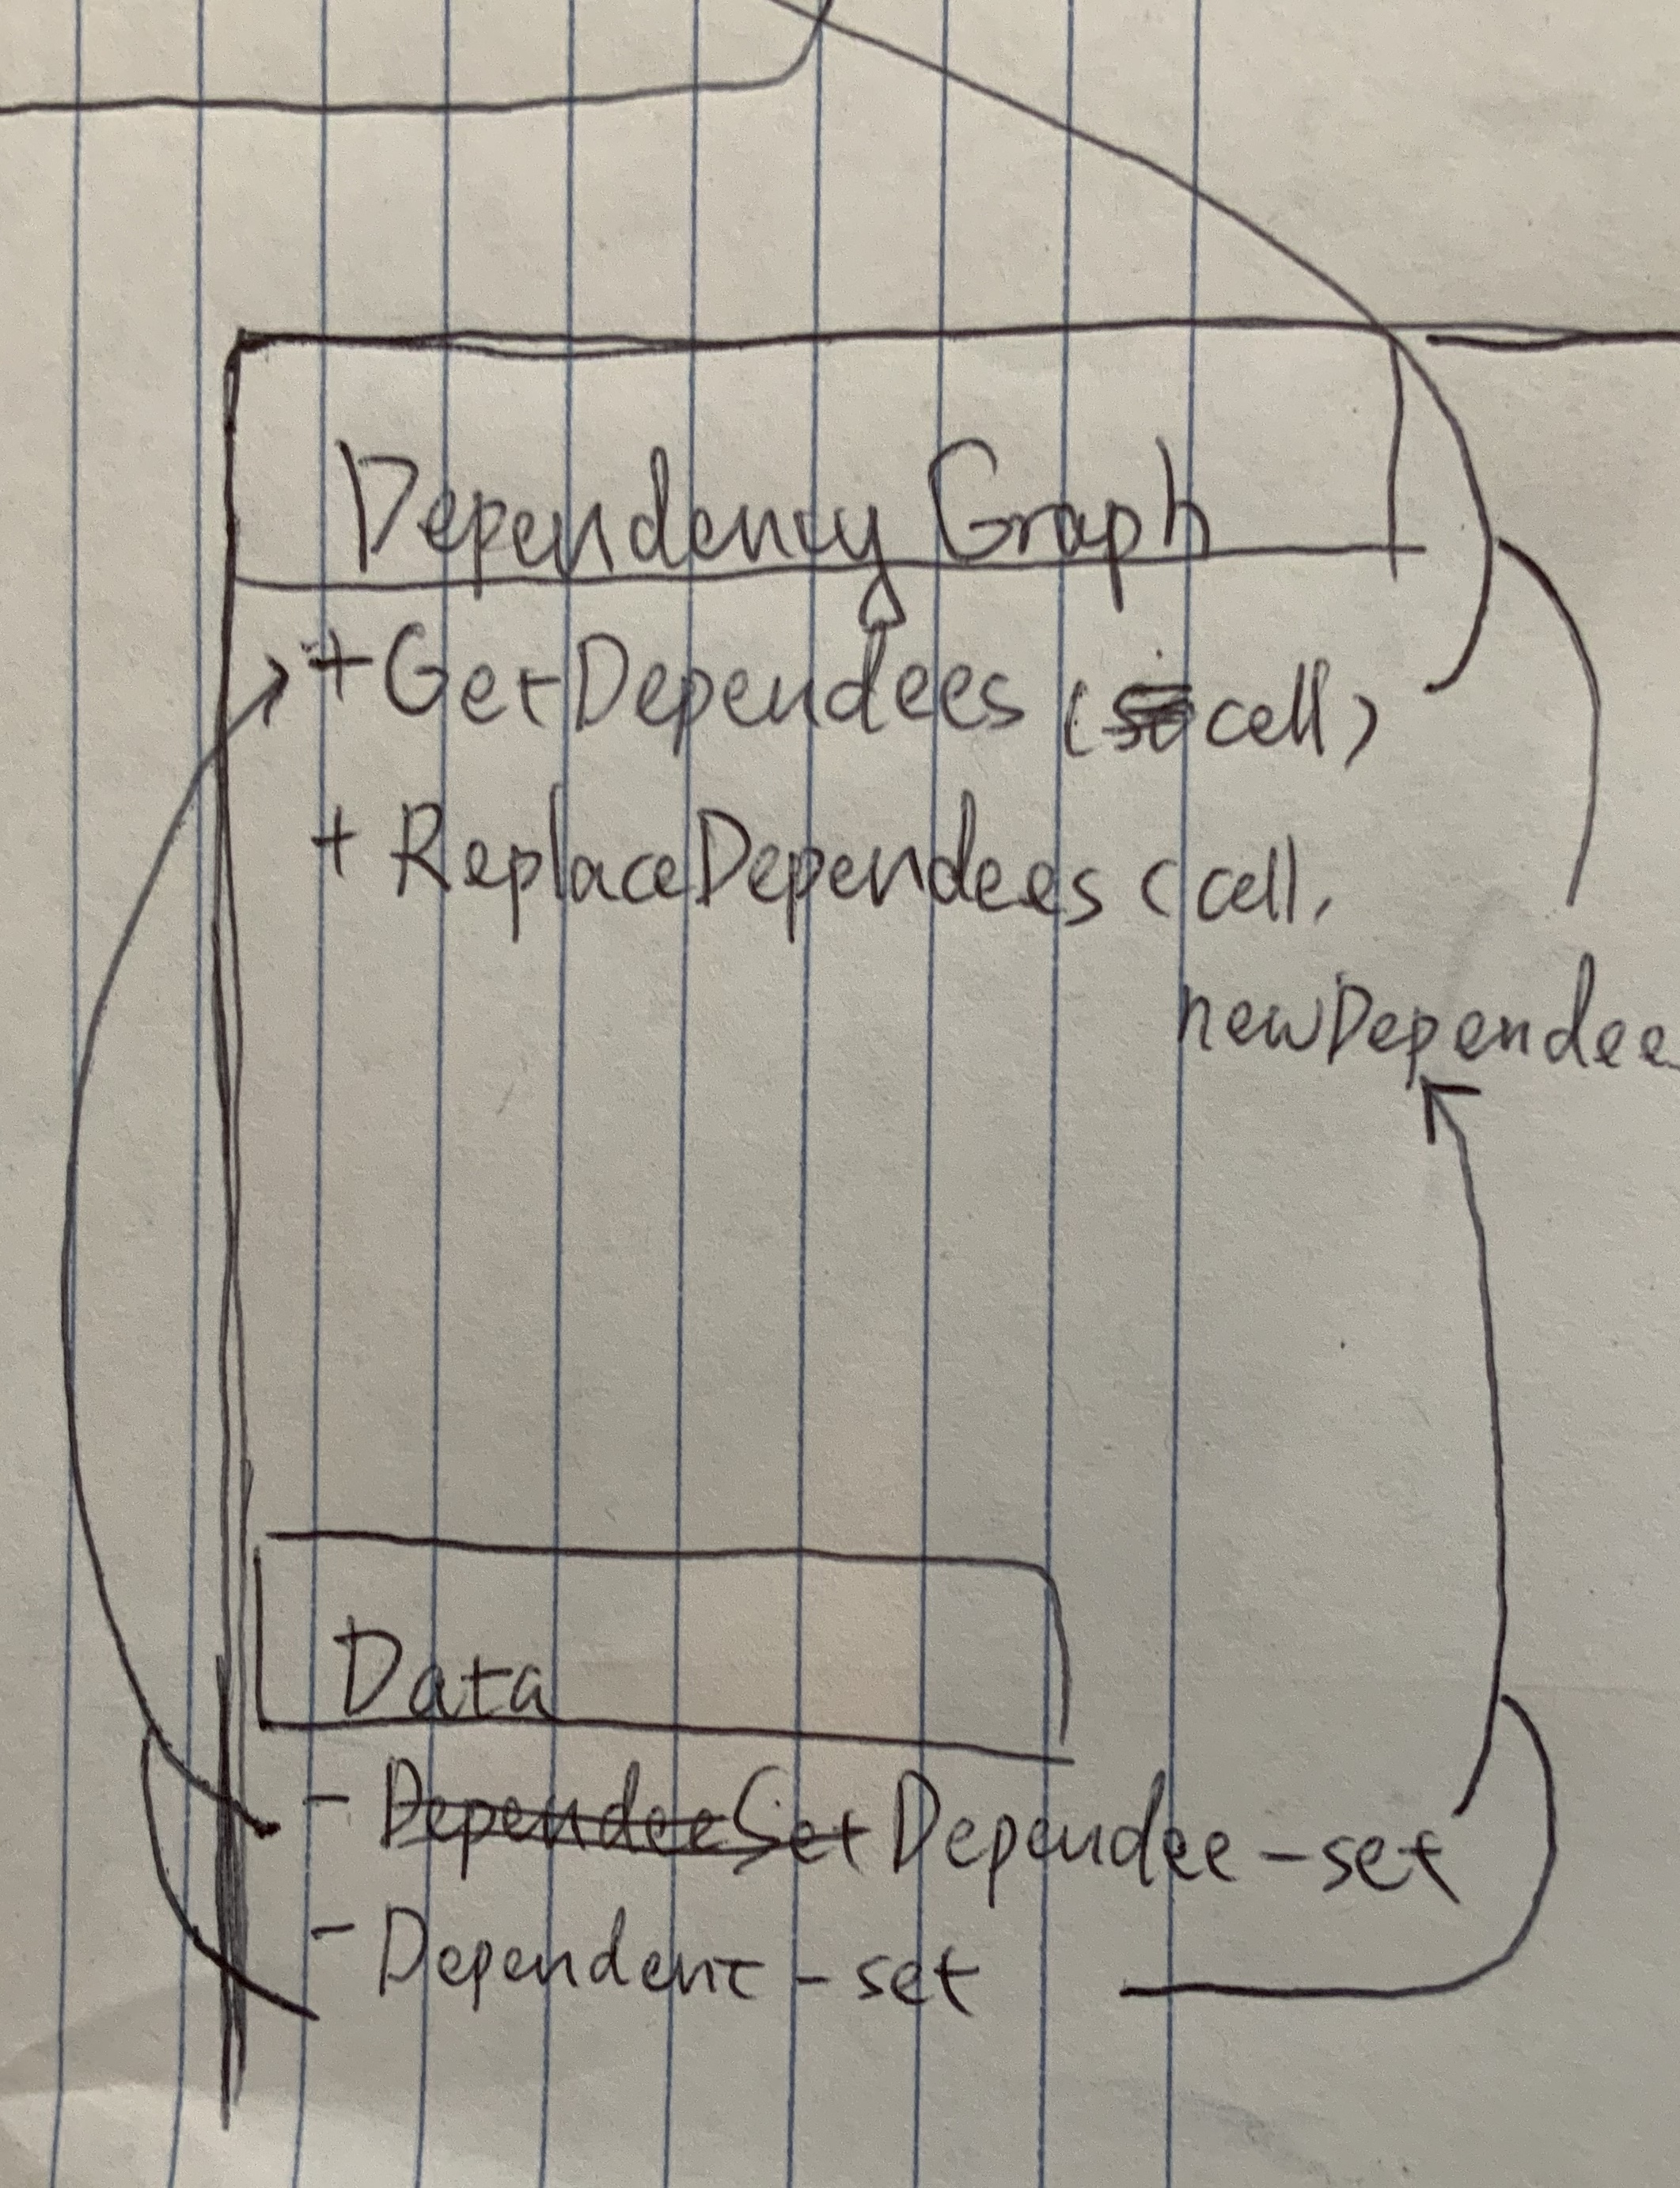 Dependency Graph
+ GetDependees (cell)
+ ReplaceDependees (cell,
newDependee
Data
- DependeeSet Dependee-set
- Dependent-set